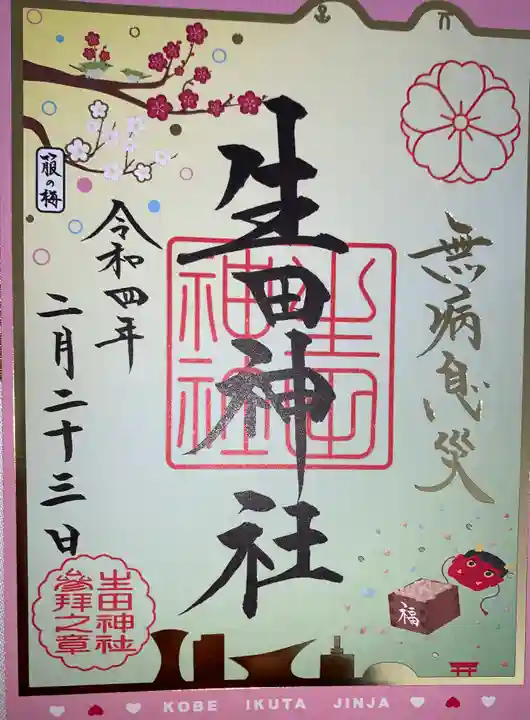 無病息災
生田神社
生田神社
令和四年
二月二十三日
箙の梅
生田神社
参拝之章
福
KOBE IKUTA JINJA